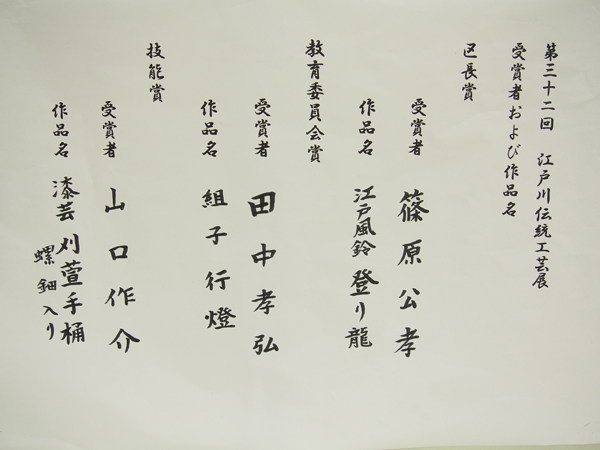 第三十二回 江戸川伝統工芸展
受賞者および作品名
区長賞
受賞者 篠原公孝
作品名 江戸風鈴 登り龍
教育委員会賞
受賞者 田中孝弘
作品名 組子行燈
技能賞
受賞者 山口作介
作品名 漆芸 刈萱手桶
螺鈿入り